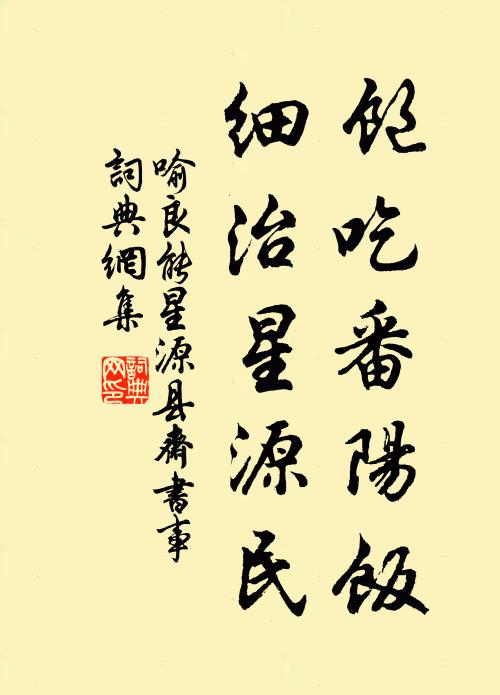 飽吃番陽飯
細治星源民
喻良能星源县齋書事
詞典網集
詞典网印